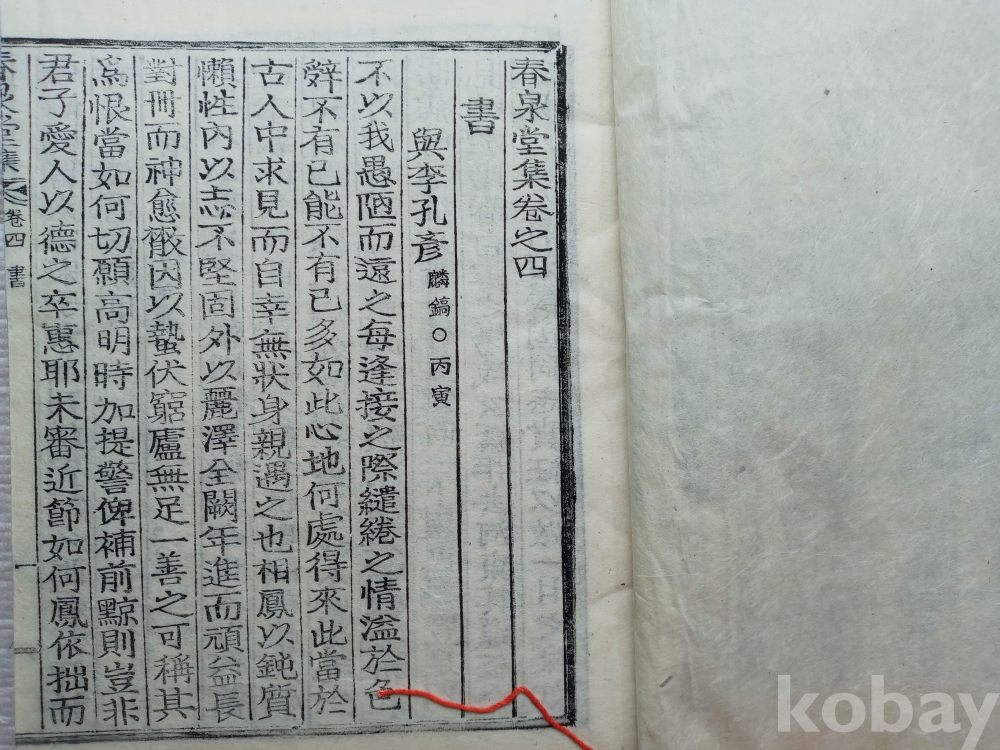 春泉堂集卷之四
書
與李孔彥 麟鎬○丙寅
不以我愚陋而遠之每逢接之際繾綣之情溢於色
辭不有已能不有已多如此心地何處得來此當於
古人中求見而自幸無狀身親遇之也相鳳以鈍質
懶性內以志不堅固外以麗澤全闕年進而頑益長
對冊而神愈襒因以蟄伏窮廬無足一善之可稱其
爲恨當如何切願高明時加提警俾補前黥則豈非
君子愛人以德之卒惠耶未審近節如何鳳依拙而
春泉堂集 卷四 書
kobay